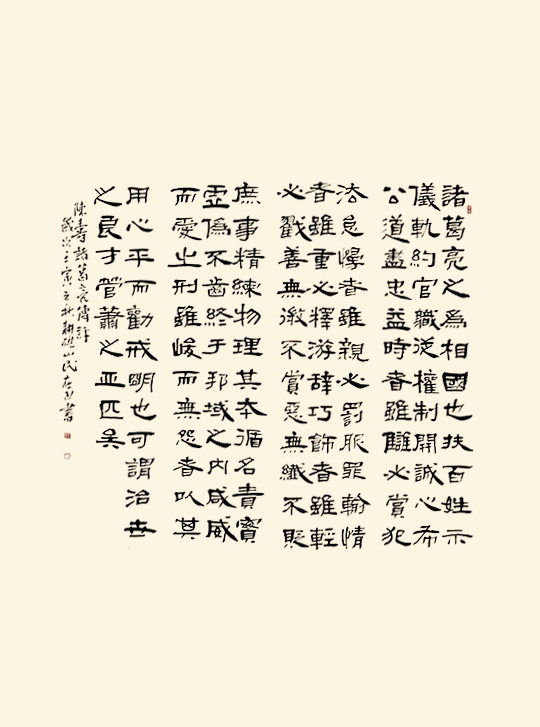 諸葛亮之為相國也扶百姓示
儀軌約官職從權制開誠心布
公道盡忠益時者雖讎必賞犯
法怠慢者雖親必罰服罪輸情
者雖重必釋游辭巧飾者雖輕
必戮善無微不賞惡無纖不貶
庶事精練物理其本循名責實
虛偽不齒終于邦域之內咸威
而愛之刑雖峻而無怨者以其
用心平而勸戒明也可謂治世
之良才管蕭之亞匹矣
陳壽諸葛亮傳評
歲次壬寅之秋耕硯山民左書